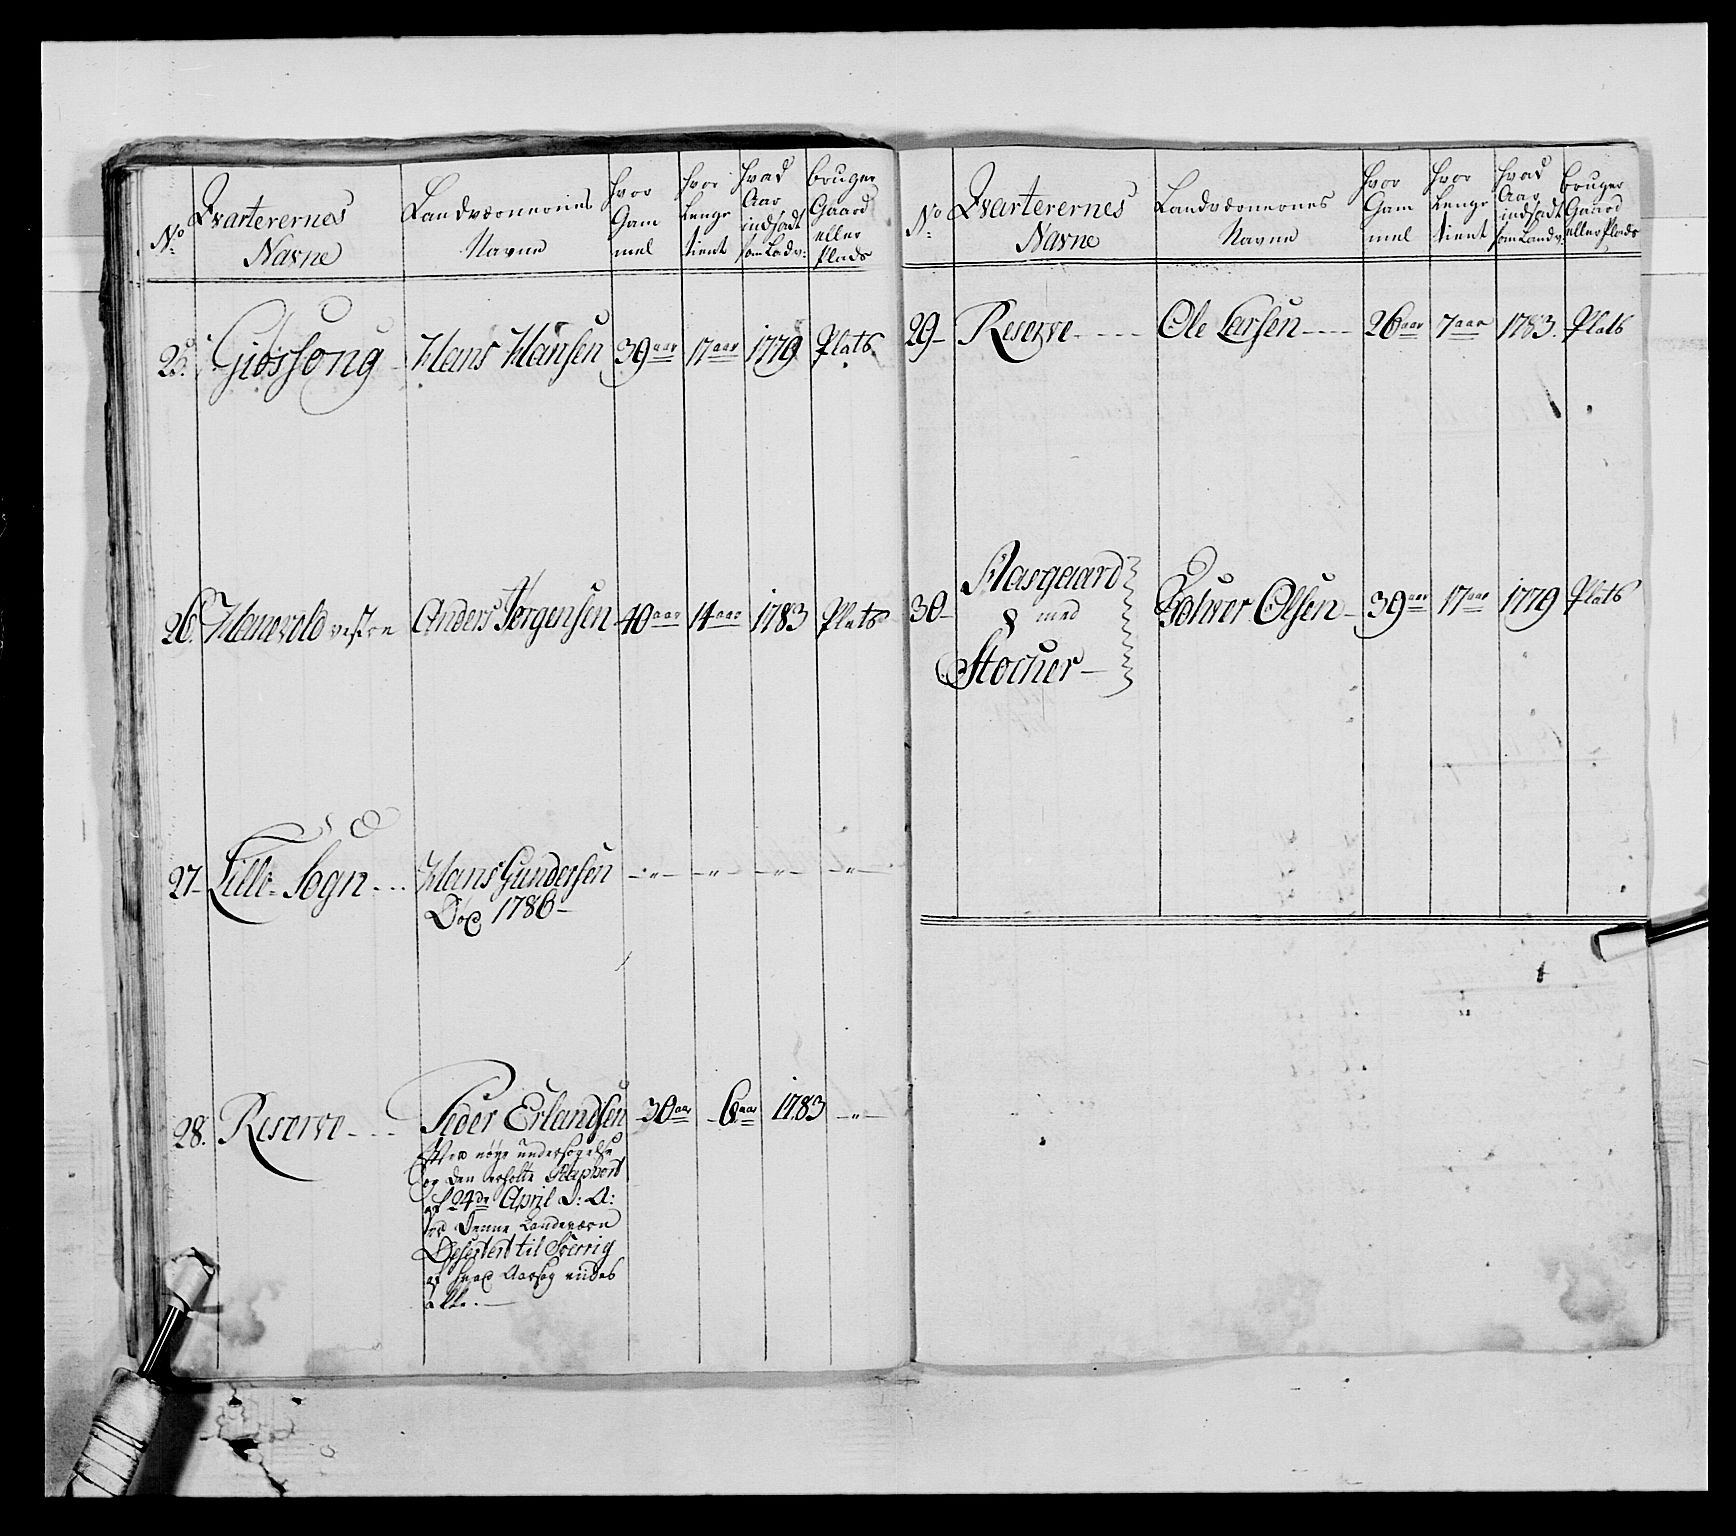 No
Qvarterernes
Navne
Landværnernes
Navne
hvor
Gam
mel
hvor
Lenge
tient
hvad
Aar
indsadt
som Landv:
bruger
Gaard
eller
Plads
25. Giøssong Hans Hansen 39 aar 17 aar 1779 Plats
26. Hanevold vestre Anders Jørgensen 40 aar 14 aar 1783 Plats
27 Lille-Sogn Hans Gundersen
Død 1786
28. Reserve Peder Erlandsen 30 aar 6 aar 1783
nøye undersøgelse
og den erholte Rapport
af 24de April d: A:
er denne Landeværn
Desertert til Sverrig
af
No
Qvarterernes
Navne
Landværnernes
Navne
hvor
Gam
mel
hvor
Lenge
tient
hvad
Aar
indsadt
som Landv:
bruger
Gaard
eller Plads
29 Reserve Ole Larsen 26 aar 7 aar 1783. Plats
30 Aasgaard
med
Stocher
Halvor Olsen 39 aar 17 aar 1779 Plats